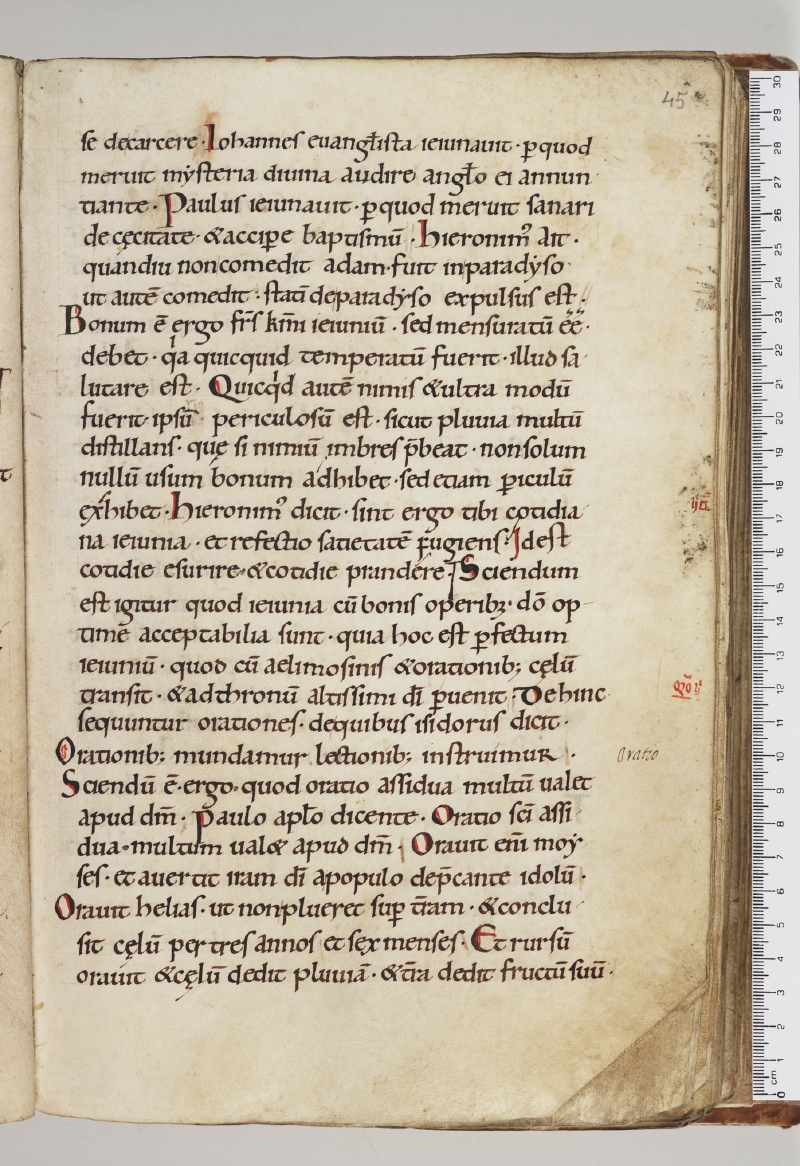 45
se decarcere · Iohannes euangłista ieiunauit · ꝑquod
meruit mẏsteria diuina audire angło ei annun
tiante · Paulus ieiunauit · ꝑquod meruit sanari
de cęcitate · &acciꝑe baptismū · hieronim᷒ Ait ·
quandiu noncomedit adam·fuit inparadẏso
ut autē comedit · statī deparadẏso expulsus est ·
Bonum ē ergo fr̄s km̄i ieiuniū · sed mensuratū ēē ·
debet · qͥa quicquid temperatū fuerit · illud sa
lutare est · Quicqͥd autē nimis &ultra modū
fuerit·ipsū periculosū est · sicut pluuia multū
distillans · quę si nimiū imbres p̄beat · nonsolum
nullū usum bonum adhibet · sed etiam ꝑiculū
exhibet · hieronim᷒ dicit · sint ergo tibi cotidia
na ieiunia · et refectio satietatē fugiens · Idest
cotidie esurire·&cotidie prandere · Sciendum
est igitur quod ieiunia cū bonis operibꝫ · dō op
timē acceptabilia sunt · quia hoc est ꝑfectum
ieiuniū · quod cū aelimosinis &orationibꝫ cęlū
transit · &adthronū altissimi dī ꝑuenit · Dehinc
sequuntur orationes · dequibus isidorus dicit ·
Orationibꝫ mundamur lectionibꝫ instruimur ·
Oratio
Sciendū ē·ergo·quod oratio assidua multū ualet
apud dm̄ · Paulo apło dicente · Oratio scī assi
dua·multum ual& apud dm̄ · Orauit eni̅ moẏ
ses · et auertit iram dī apopulo dep̄cante idolū ·
Orauit helias · ut nonplueret suꝑ tr̄am · &conclu
sit cęlū per tres annos et sex menses · Et rursū
orauit &cęlū dedit pluuiā · &tr̄a dedit fructū suū ·